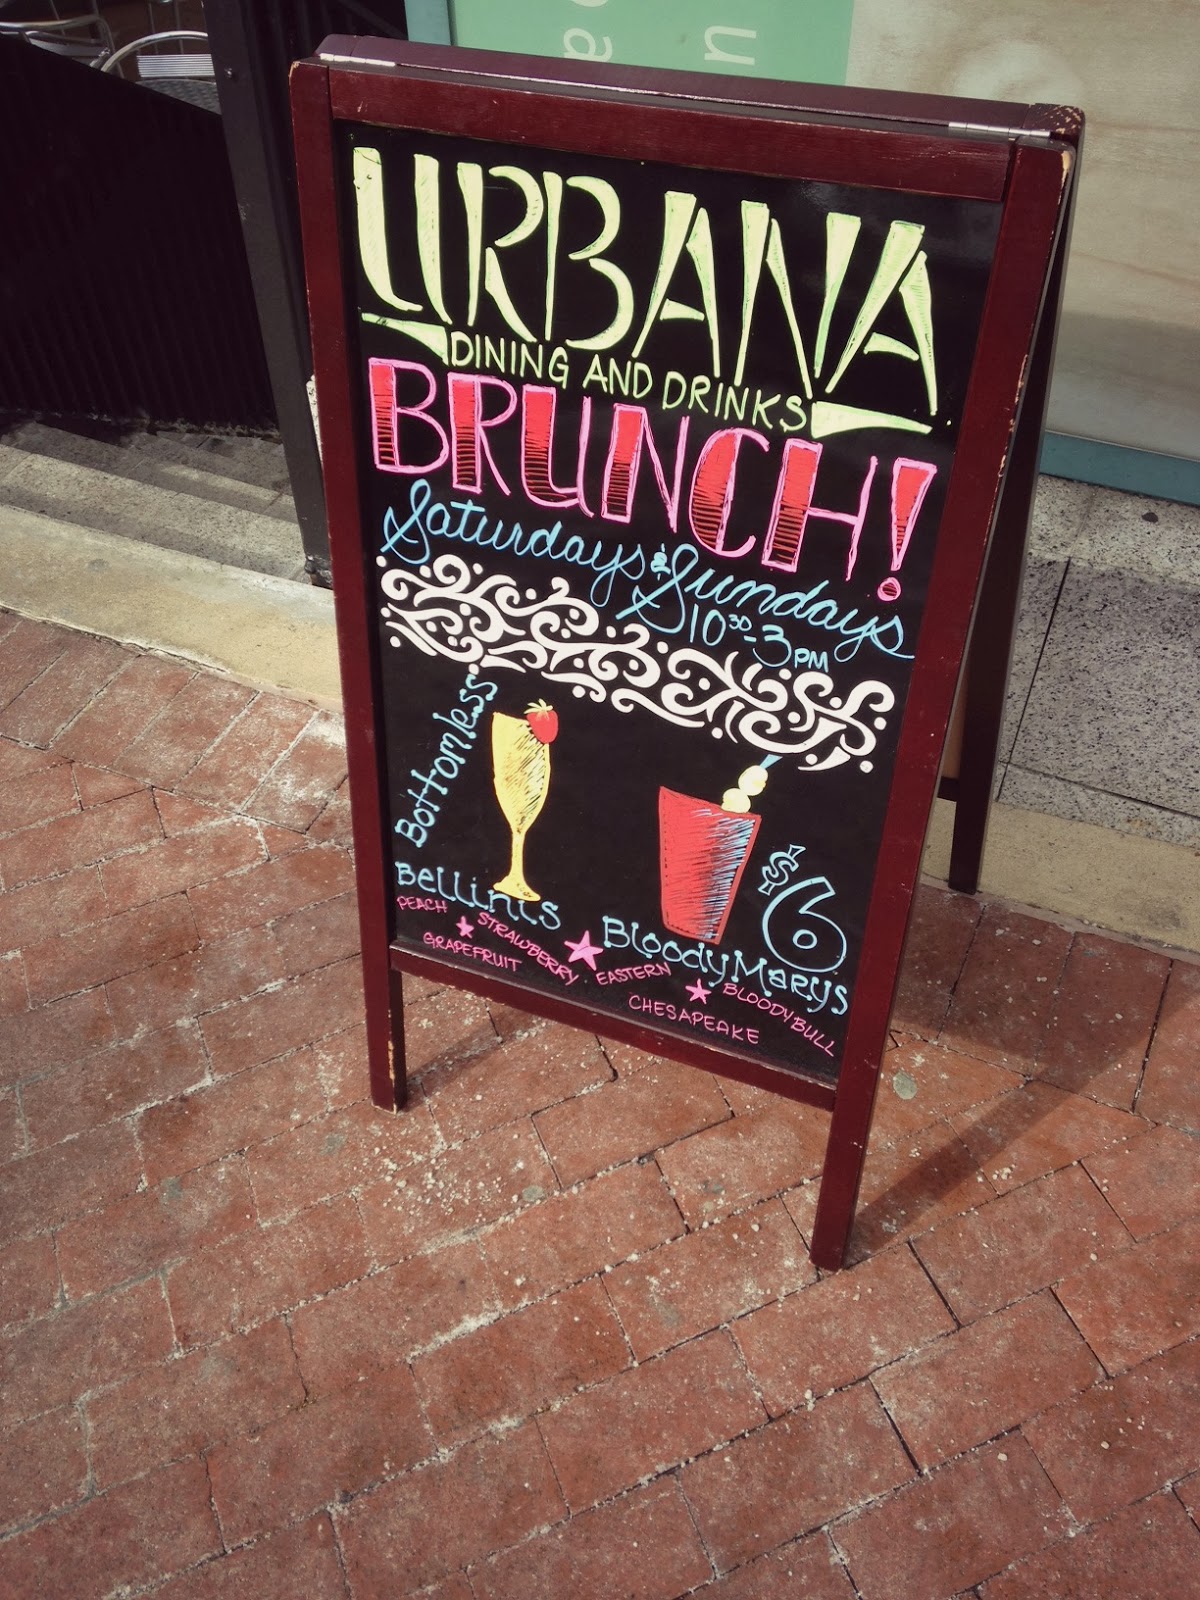 URBANA
DINING AND DRINKS
BRUNCH!
Saturdays & Sundays
10³⁰-3PM
Bottomless
Bellinis
PEACH ★ STRAWBERRY
GRAPEFRUIT
$6
Bloody Marys
EASTERN ★ BLOODY BULL
CHESAPEAKE